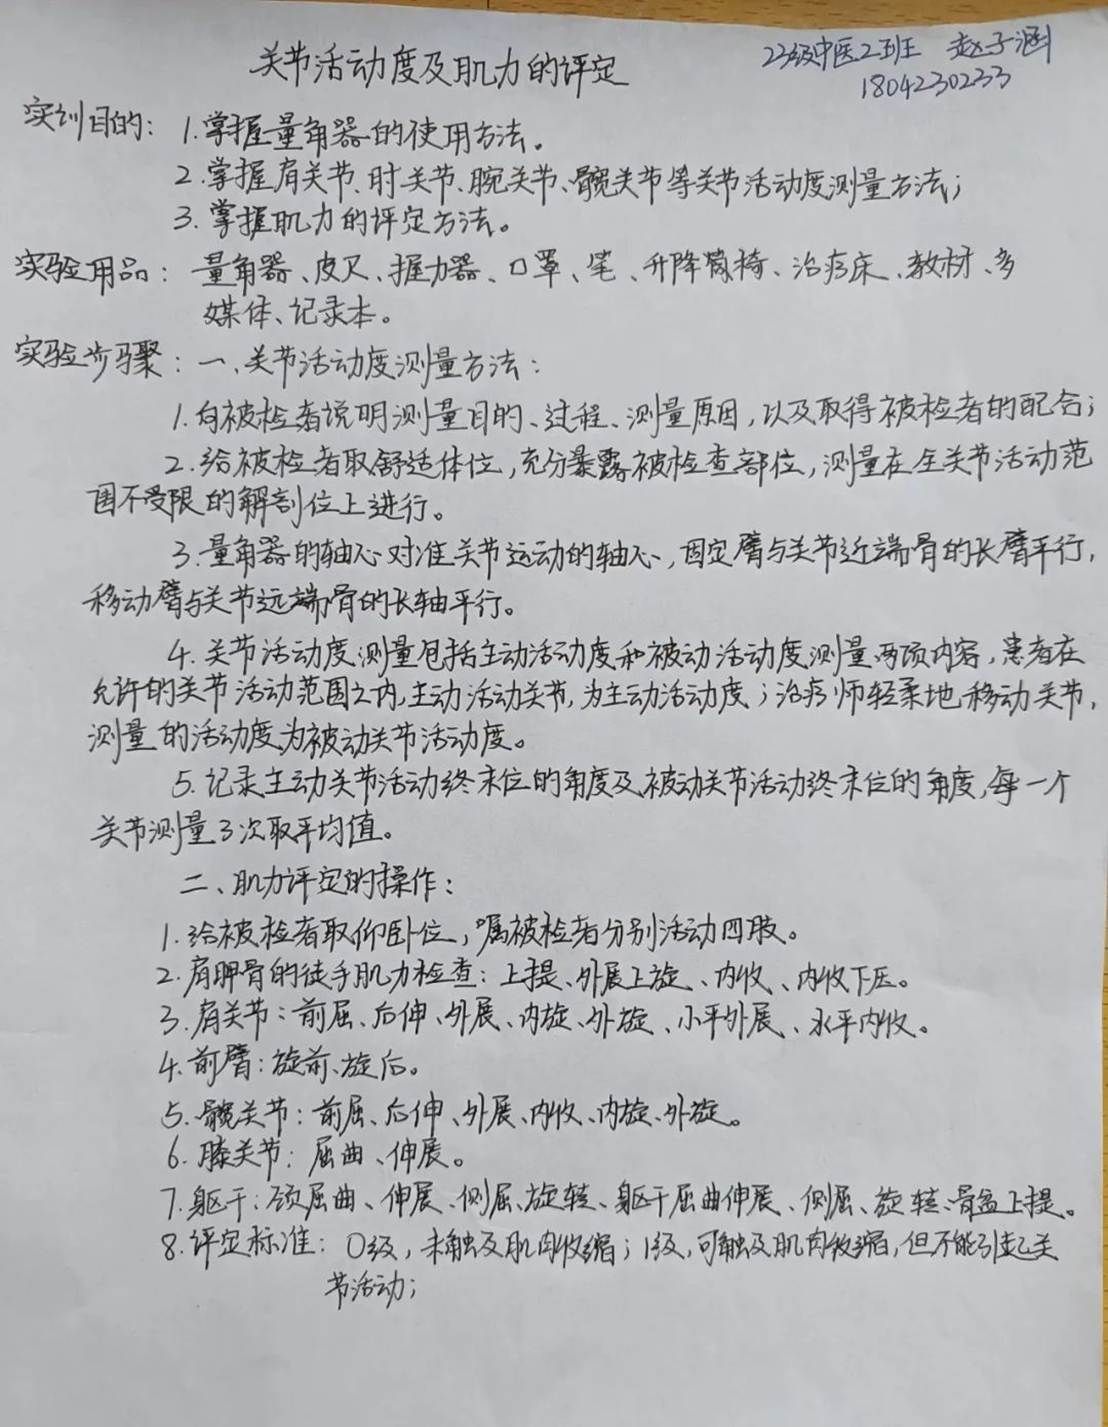 关节活动度及肌力的评定
23级中医2班 赵子涵
1804230233
实训目的：1.掌握量角器的使用方法。
2.掌握肩关节、肘关节、腕关节、髋关节等关节活动度测量方法；
3.掌握肌力的评定方法。
实验用品：量角器、皮尺、握力器、口罩、笔、升降椅、治疗床、教材、多
媒体、记录本。
实验步骤：一、关节活动度测量方法：
1.向被检者说明测量目的、过程、测量原因，以及取得被检者的配合；
2.给被检者取舒适体位，充分暴露被检查部位，测量在全关节活动范
围不受限的解剖位上进行。
3.量角器的轴心对准关节运动的轴心，固定臂与关节近端骨的长臂平行，
移动臂与关节远端骨的长轴平行。
4.关节活动度测量包括主动活动度和被动活动度测量两项内容，患者在
允许的关节活动范围之内，主动活动关节，为主动活动度；治疗师轻柔地移动关节，
测量的活动度为被动关节活动度。
5.记录主动关节活动终末位的角度及被动关节活动终末位的角度，每一个
关节测量3次取平均值。
二、肌力评定的操作：
1.给被检者取仰卧位，嘱被检者分别活动四肢。
2.肩胛骨的徒手肌力检查：上提、外展上旋、内收、内收下压。
3.肩关节：前屈、后伸、外展、内旋、外旋、小平外展、水平内收。
4.前臂：旋前、旋后。
5.髋关节：前屈、后伸、外展、内收、内旋、外旋。
6.膝关节：屈曲、伸展。
7.躯干：颈屈曲、伸展、侧屈、旋转、躯干屈曲伸展、侧屈、旋转、骨盆上提。
8.评定标准：0级，未触及肌肉收缩；1级，可触及肌肉收缩，但不能引起关
节活动；